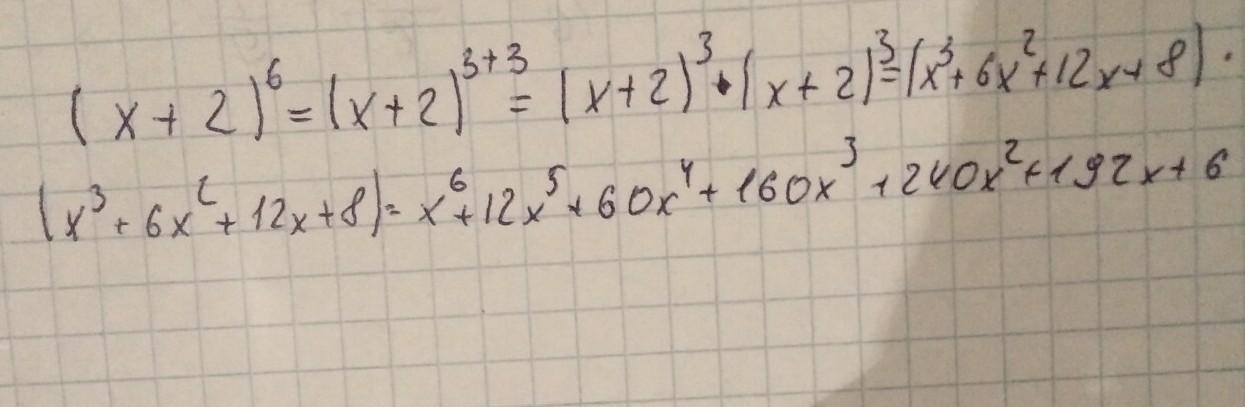 (x+2)⁶=(x+2)³⁺³=(x+2)³·(x+2)³=(x³+6x²+12x+8)·
(x³+6x²+12x+8)=x⁶+12x⁵+60x⁴+160x³+240x²+192x+6